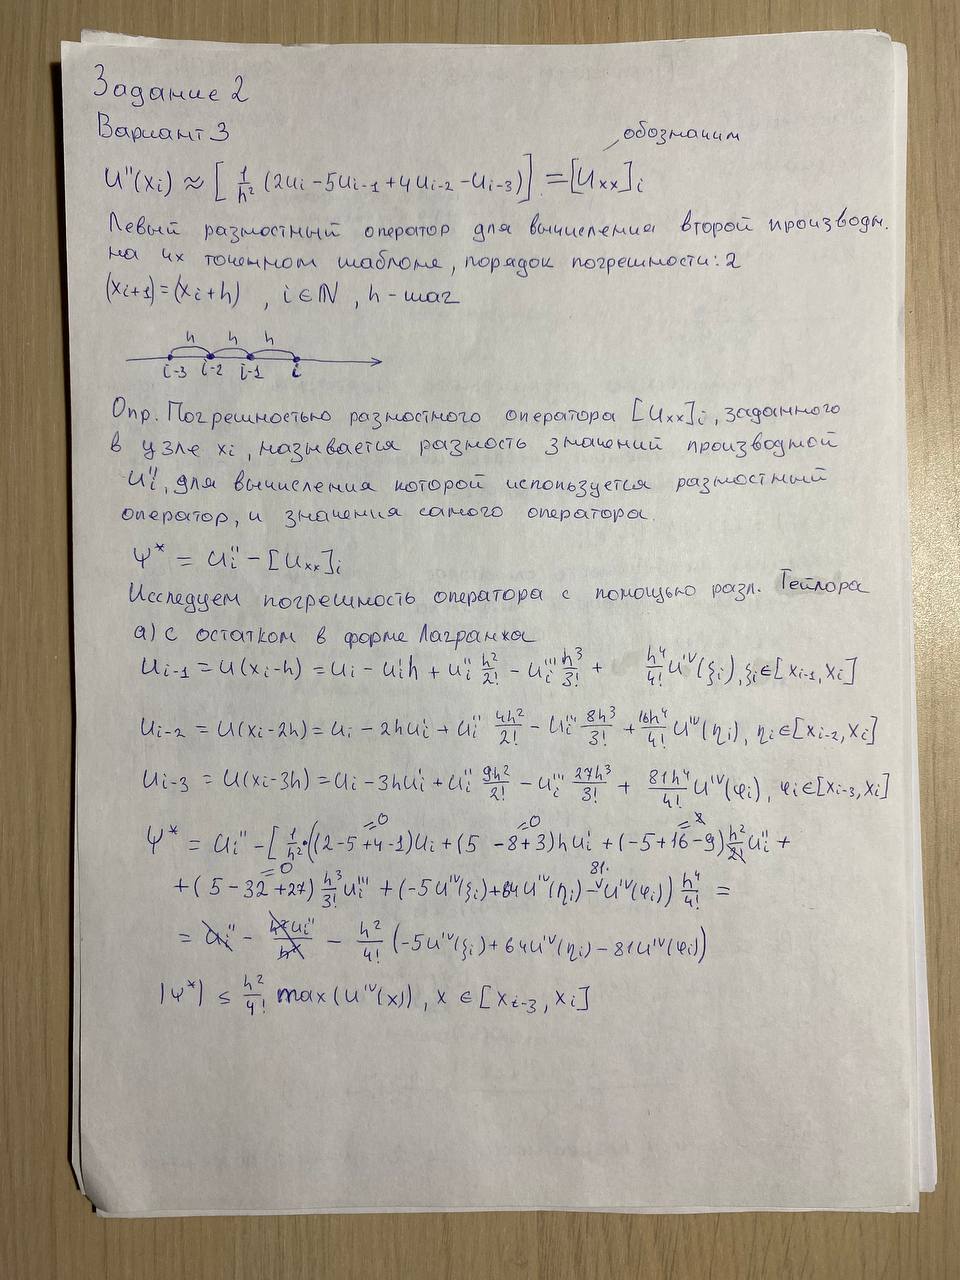 Задание 2
Вариант 3
обозначим
U''(xi) ≈ [ 1/h² (2Ui -5Ui-1 +4Ui-2 -Ui-3) ] = [Uxx]i
Левый разностный оператор для вычисления второй производн.
на их точечном шаблоне, порядок погрешности: 2
(xi+1) = (xi+h) , i∈ℕ , h - шаг
h h h
i-3 i-2 i-1 i
Опр. Погрешностью разностного оператора [Uxx]i, заданного
в узле xi, называется разность значений производной
Ui'', для вычисления которой используется разностный
оператор, и значения самого оператора.
Ψ* = Ui'' - [Uxx]i
Исследуем погрешность оператора с помощью разл. Тейлора
а) с остатком в форме Лагранжа
Ui-1 = U(xi-h) = Ui - Ui'h + Ui'' h²/2! - Ui''' h³/3! + h⁴/4! Uᴵⱽ(ξi), ξi∈[xi-1, xi]
Ui-2 = U(xi-2h) = Ui - 2hUi' + Ui'' 4h²/2! - Ui''' 8h³/3! + 16h⁴/4! Uᴵⱽ(ηi), ηi∈[xi-2, xi]
Ui-3 = U(xi-3h) = Ui - 3hUi' + Ui'' 9h²/2! - Ui''' 27h³/3! + 81h⁴/4! Uᴵⱽ(φi), φi∈[xi-3, xi]
=0 =0 =2
Ψ* = Ui'' - [ 1/h² · ((2-5+4-1)Ui + (5 -8+3)hUi' + (-5+16-9) h²/2! Ui'' +
=0
+ (5-32+27) h³/3! Ui''' + (-5Uᴵⱽ(ξi)+64Uᴵⱽ(ηi)-81Uᴵⱽ(φi)) h⁴/4! =
= Ui'' - h²Ui''/h² - h²/4! (-5Uᴵⱽ(ξi) + 64Uᴵⱽ(ηi) - 81Uᴵⱽ(φi))
|Ψ*| ≤ h²/4! max(Uᴵⱽ(x)), x ∈ [xi-3, xi]